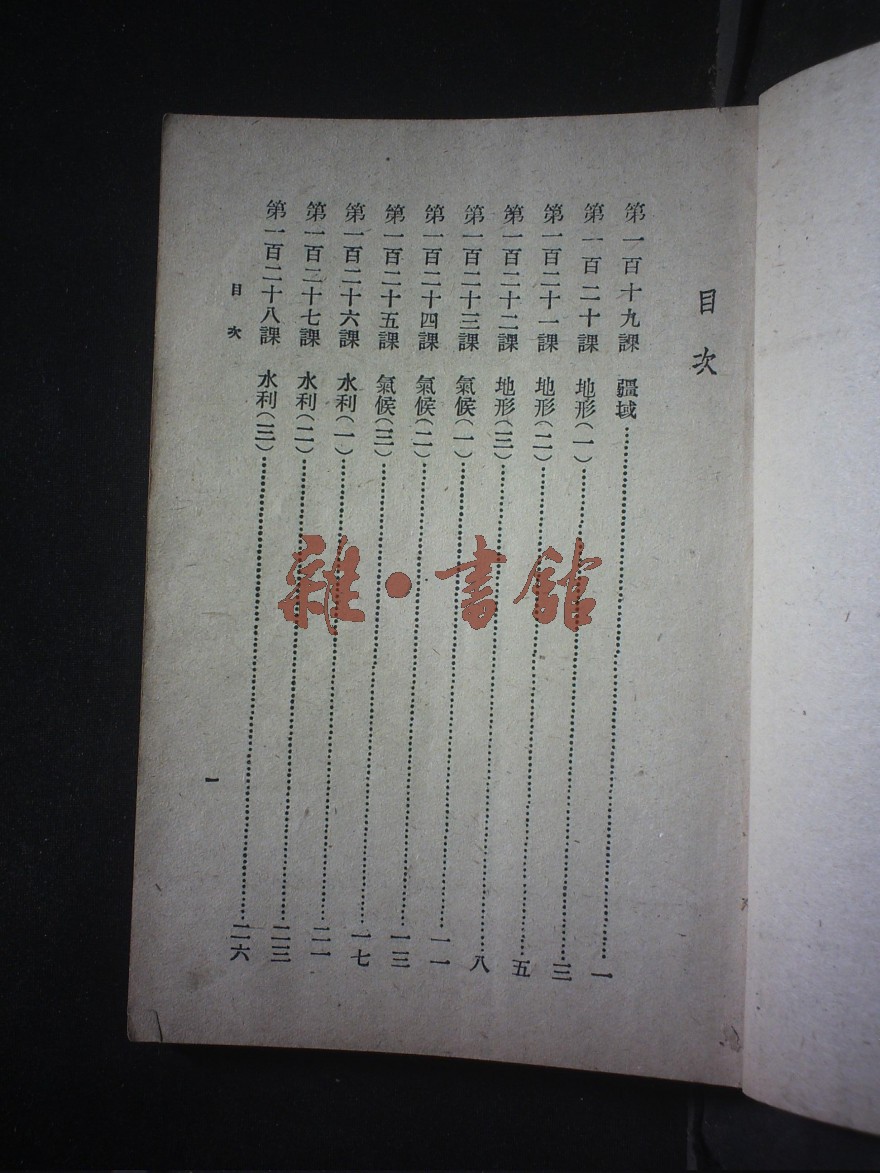 目次
第一百十九課 疆域……一
第一百二十課 地形(一)……三
第一百二十一課 地形(二)……五
第一百二十二課 地形(三)……八
第一百二十三課 氣候(一)……一一
第一百二十四課 氣候(二)……一三
第一百二十五課 氣候(三)……一七
第一百二十六課 水利(一)……二一
第一百二十七課 水利(二)……二三
第一百二十八課 水利(三)……二六
目次
一
雜·書館